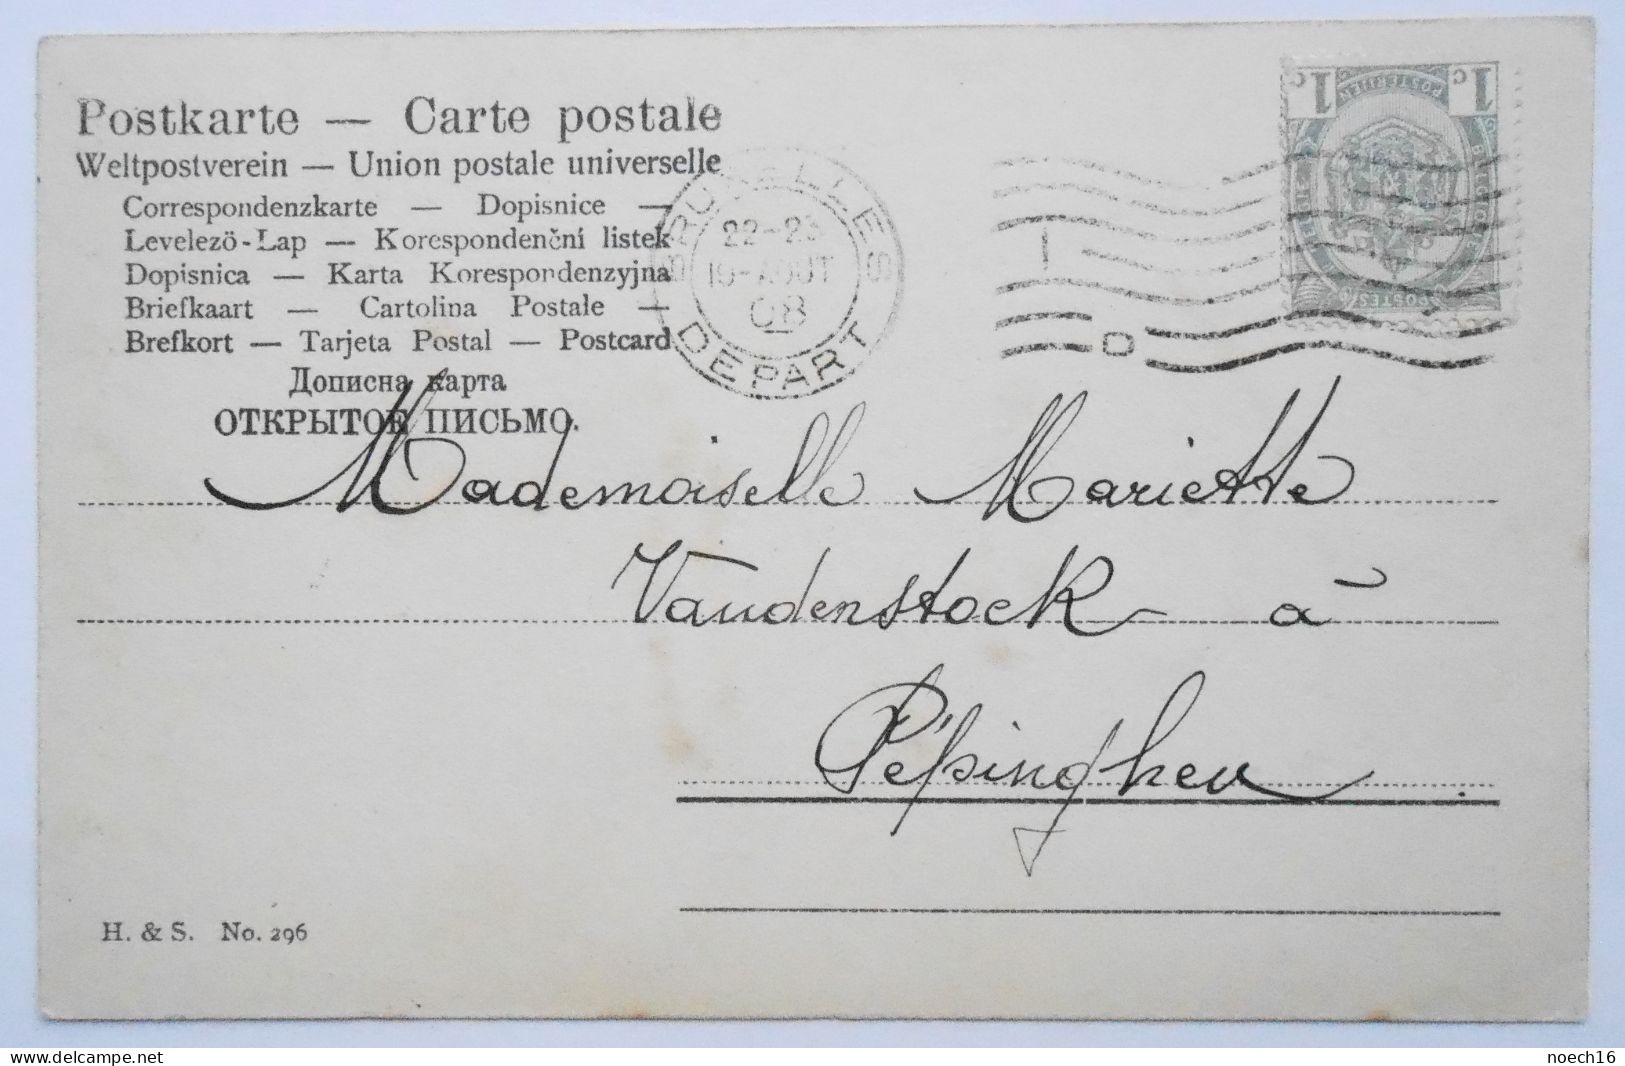 Postkarte — Carte postale
Weltpostverein — Union postale universelle
Correspondenzkarte — Dopisnice —
Levelező-Lap — Korespondenční listek
Dopisnica — Karta Korespondenzyjna
Briefkaart — Cartolina Postale —
Brefkort — Tarjeta Postal — Postcard
Дописна карта
ОТКРЫТОЕ ПИСЬМО.
BRUXELLES
22-23
19-AOUT
08
DEPART
1 c 1 c
POSTERIJEN
BELGIQUE
POSTES
Mademoiselle Mariette
Vandenstock à
Pépinghen.
H. & S. No. 296
delcampe.net
noech16